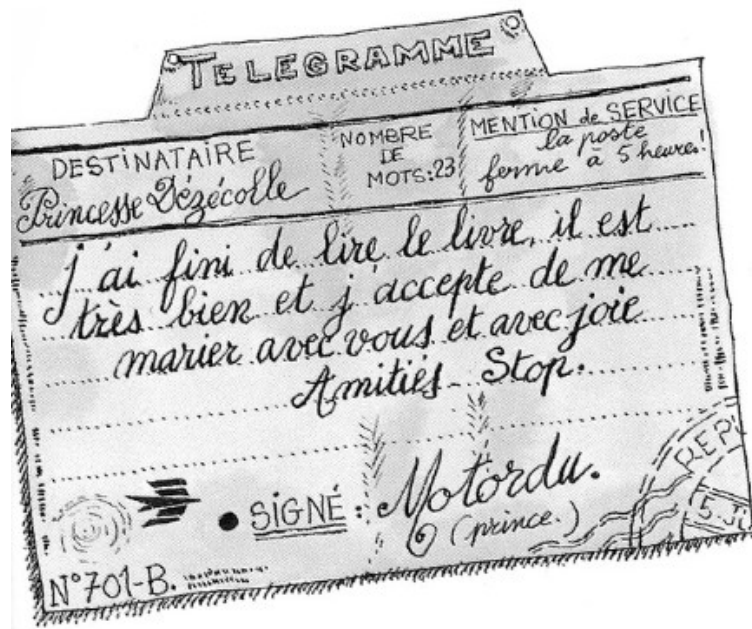 TELEGRAMME
DESTINATAIRE
Princesse Dézécolle
NOMBRE
DE
MOTS:23
MENTION de SERVICE
la poste
ferme à 5 heures!
j'ai fini de lire le livre, il est
très bien et j'accepte de me
marier avec vous et avec joie
Amitiés Stop.
SIGNÉ: Motordu.
(prince.)
N°701-B.
REP
5.JU